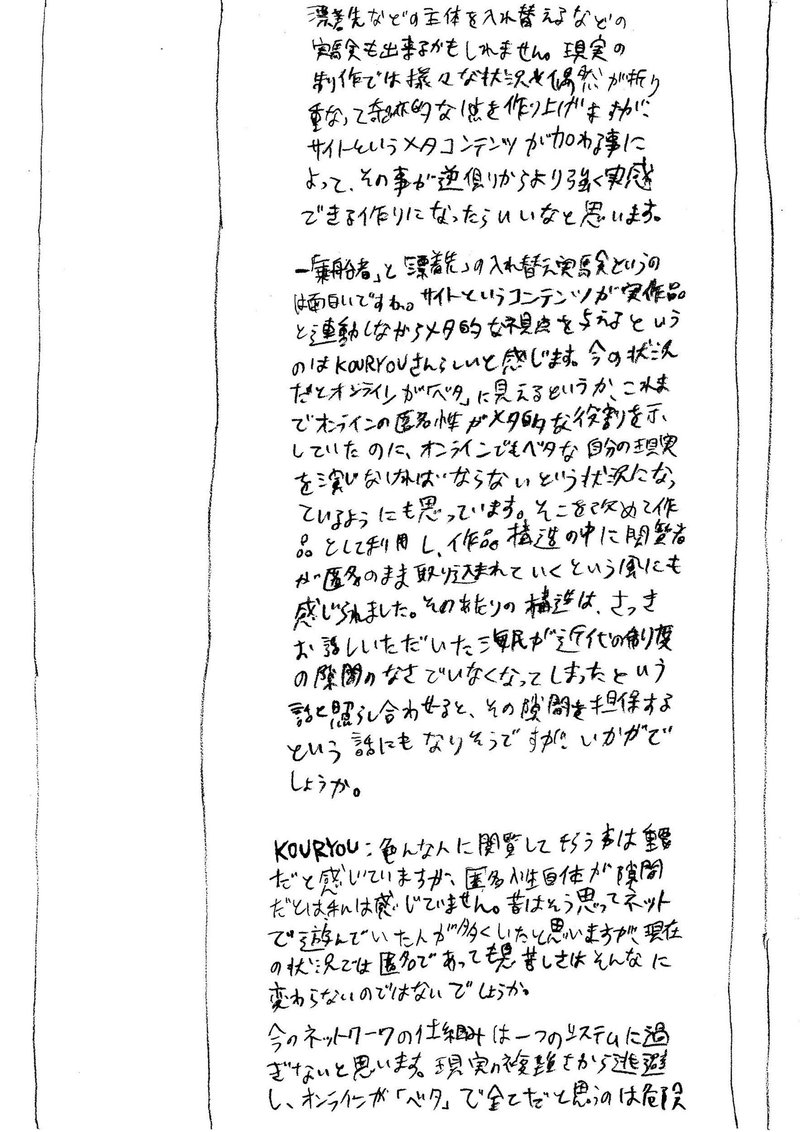 漂着先などの主体を入れ替えるなどの
実験も出来るかもしれません。現実の
制作では様々な状況や偶然が折り
重なって奇跡的な体を作り上げますが、
サイトというメタコンテンツが加わる事に
よって、その事が逆側からより強く実感
できる作りになったらいいなと思います。
―「乗船者」と「漂着先」の入れ替え実験というの
は面白いですね。サイトというコンテンツが実作品
と連動しながらメタ的な視点を与えるという
のはKOURYOUさんらしいと感じます。今の状況
だとオンラインが「ベタ」に見えるというか、これま
でオンラインの匿名性がメタ的な役割を示
していたのに、オンラインでもベタな自分の現実
を演じなければならないという状況になっ
ているようにも思っています。そこを改めて作
品として利用し、作品構造の中に閲覧者
が匿名のまま取り込まれていくという風にも
感じられました。そのあたりの構造は、さっき
お話しいただいた海民が近代の制度
の隙間のなさでいなくなってしまったという
話と照らし合わせると、その隙間を担保する
という話にもなりそうですが、いかがで
しょうか。
KOURYOU：色んな人に閲覧してもらう事は重要
だと感じていますが、匿名性自体が隙間
だとは私は感じていません。昔はそう思ってネット
で遊んでいた人が多くいたと思いますが、現在
の状況では匿名であっても息苦しさはそんなに
変わらないのではないでしょうか。
今のネットワークの仕組みは一つのシステムに過
ぎないと思います。現実の複雑さから逃避
し、オンラインが「ベタ」で全てだと思うのは危険